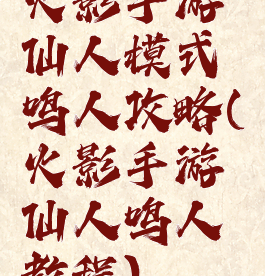 火影手游
仙人模式
鸣人攻略(
火影手游
仙人鸣人
教程)